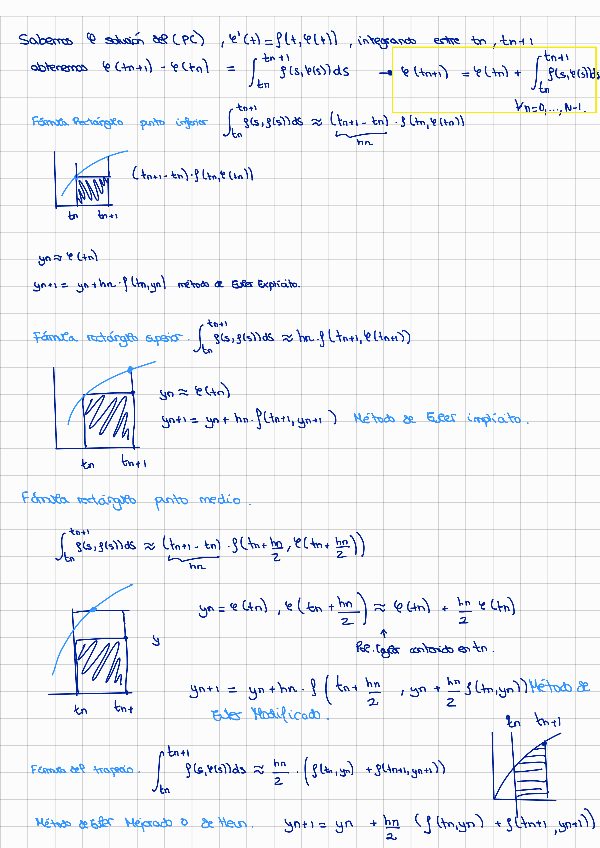 Sabemos φ solución del (PC), φ'(t) = f(t, φ(t)), integrando entre tn, tn+1
obtenemos φ(tn+1) - φ(tn) = ∫_{tn}^{tn+1} f(s, φ(s))ds → φ(tn+1) = φ(tn) + ∫_{tn}^{tn+1} f(s, φ(s))ds
∀n=0,..., N-1.
Fórmula Rectángulo punto inferior ∫_{tn}^{tn+1} f(s, f(s))ds ≈ (tn+1 - tn) · f(tn, φ(tn))
hn
(tn+1 - tn) · f(tn, φ(tn))
tn tn+1
yn ≈ φ(tn)
yn+1 = yn + hn · f(tn, yn) método de Euler Explícito.
Fórmula rectángulo superior. ∫_{tn}^{tn+1} f(s, f(s))ds ≈ hn · f(tn+1, φ(tn+1))
yn ≈ φ(tn)
yn+1 = yn + hn · f(tn+1, yn+1) Método de Euler implícito.
tn tn+1
Fórmula rectángulo punto medio.
∫_{tn}^{tn+1} f(s, f(s))ds ≈ (tn+1 - tn) · f(tn + hn/2, φ(tn + hn/2))
hn
yn = φ(tn), φ(tn + hn/2) ≈ φ(tn) + hn/2 φ(tn)
y
Pol. Taylor centrado en tn.
yn+1 = yn + hn · f(tn + hn/2, yn + hn/2 f(tn, yn)) Método de
tn tn+
Euler Modificado.
tn tn+1
Fórmula del trapecio. ∫_{tn}^{tn+1} f(s, φ(s))ds ≈ hn/2 · (f(tn, yn) + f(tn+1, yn+1))
Método de Euler Mejorado o de Heun. yn+1 = yn + hn/2 (f(tn, yn) + f(tn+1, yn+1))